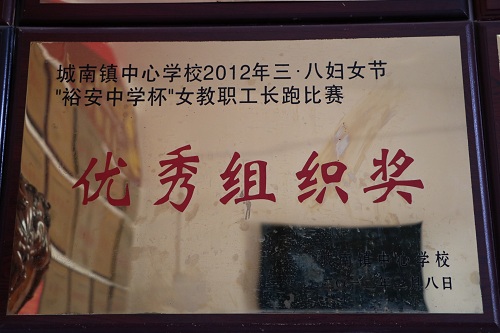 城南镇中心学校2012年三·八妇女节
"裕安中学杯"女教职工长跑比赛
优秀组织奖
学校
八日